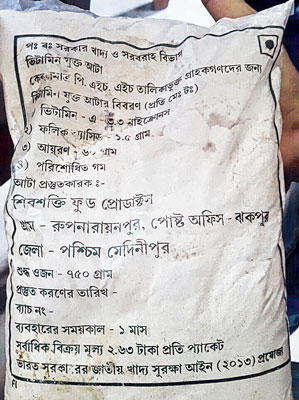 পঃ বঃ সরকার খাদ্য ও সরবরাহ বিভাগ
ভিটামিন যুক্ত আটা
পি. এইচ. এইচ তালিকাভুক্ত গ্রাহকগণদের জন্য
যুক্ত আটার বিবরণ (প্রতি মেঃ টঃ)
ভিটামিন - এ - ৩.৩
২) ফলিক - ১.৫ গ্রাম
৩) আয়রণ - গ্রাম
৪) পরিশোধিত গম
আটা প্রস্তুতকারক ঃ-
শিবশক্তি ফুড প্রোডাক্টস
গ্রাম - রুপনারায়নপুর, পোষ্ট অফিস - ঝকপুর
জেলা - পশ্চিম মেদিনীপুর
শুদ্ধ ওজন - ৭৫০ গ্রাম
প্রস্তুত করণের তারিখ -
ব্যাচ নং -
ব্যবহারের সময়কাল - ১ মাস
সর্বাধিক বিক্রয় মূল্য ২.৬৩ টাকা প্রতি প্যাকেট
ভারত জাতীয় খাদ্য সুরক্ষা আইন (২০১৩) প্রযোজ্য